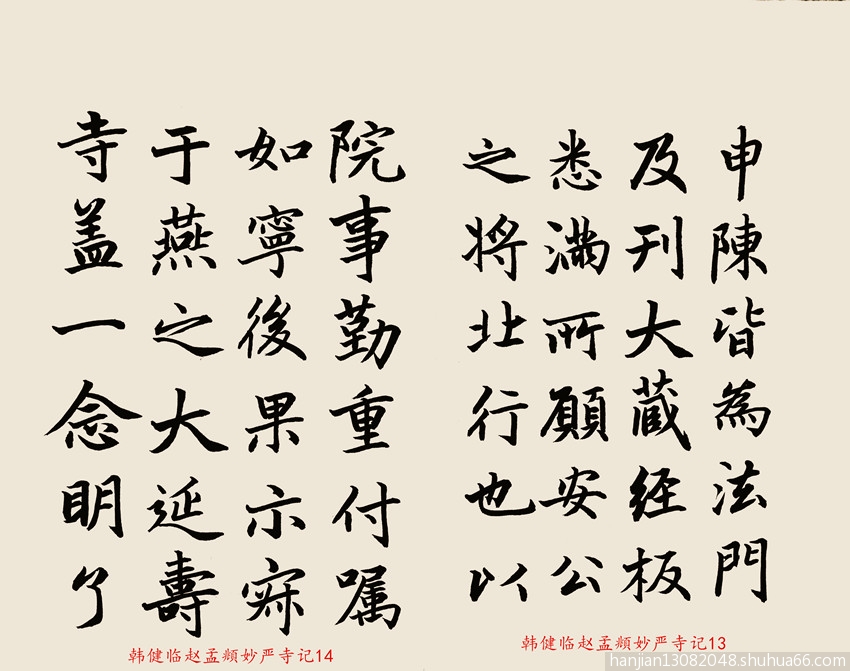 申陳皆為法門
及刊大蔵経板
悉满所願安公
之将北行也以
韩健临赵孟頫妙严寺记13
院事勤重付嘱
如寧後果示寂
于燕之大延壽
寺盖一念明了
韩健临赵孟頫妙严寺记14
hanjian13082048.shuhua66.com